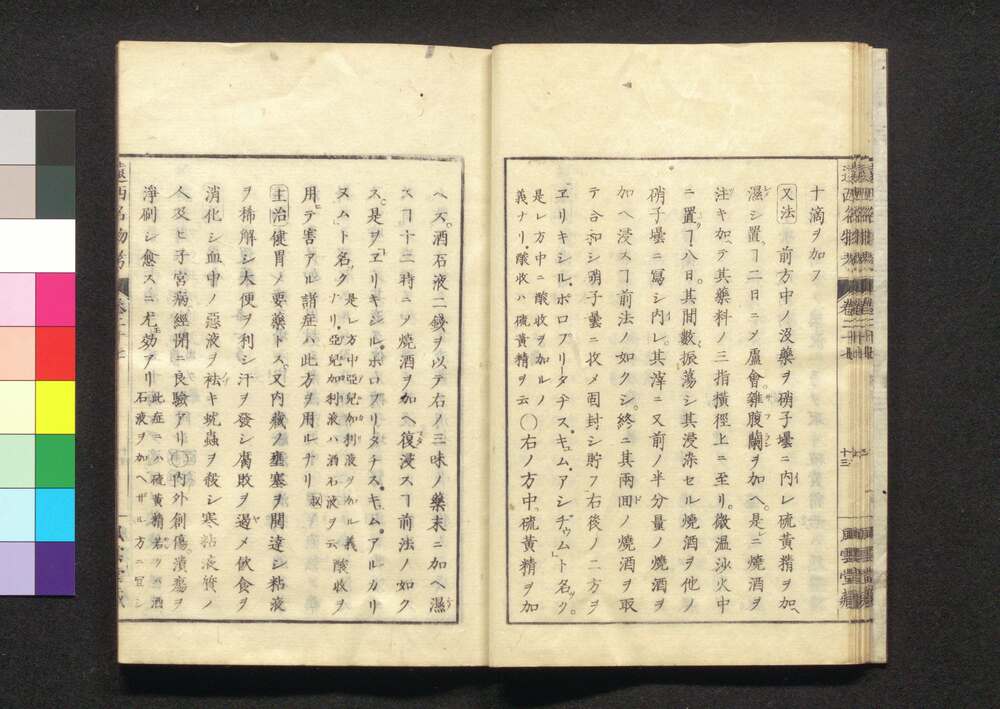 十滴ヲ加フ
又法 前方中ノ沒藥ヲ硝子壜ニ内レ硫黄精ヲ加ヘ
濕シ置ヿ二日ニメ盧會雜腹蘭ヲ加ヘ是ニ燒酒ヲ
注キ加テ其藥料ノ三指横徑上ニ至リ微温泳火中
ニ置ヿ八日其間數振蕩シ其浸染セル燒酒ヲ他ノ
硝子壜ニ寫シ内レ其滓ニ又前ノ半分量ノ燒酒ヲ
加ヘ浸スヿ前法ノ如クシ終ニ其兩回ノ燒酒ヲ取
テ合和シ硝子壜ニ收メ固封シ貯フ右後ノ二方ヲ
ヱリキシル・ポロプリータチス・キュム・アシヂウム」ト名ツク
是レ方中ニ酸收ヲ加ルノ
義ナリ酸收ハ硫黄精ヲ云 ○右ノ方中硫黄精ヲ加
ヘス酒石液二錢ヲ以テ右ノ三味ノ藥末ニ加ヘ濕
スヿ十二時ニメ燒酒ヲ加ヘ復浸スヿ前法ノ如ク
ス是ヲ「ヱリキシル・ポロプリタチス・キュム・アルカリ
ヌム」ト名ツク 是レ方中亞兒加利液ヲ加ルノ義
ナリ亞兒加利液ハ酒石液ヲ云 酸收ヲ
用テ害アル諸症ハ此方ヲ用ルナリ
主治健胃ノ要藥トス又内臓ノ壅塞ヲ開達シ粘液
ヲ稀解シ大便ヲ利シ汗ヲ發シ腐敗ヲ遏メ飲食ヲ
消化シ血中ノ惡液ヲ袪キ蚘蟲ヲ殺シ寒粘液質ノ
人及ヒ子宮病經閉ニ良驗アリ○内外創傷潰瘍ヲ
淨刷シ愈スニ尤モ効アリ 此症ニハ硫黄精若クハ酒
石液ヲ加ヘザル方ニ宜シ
遠西名物考